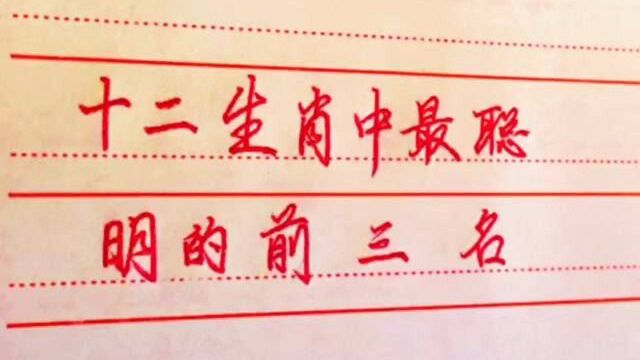 十二生肖中最聪
明的前三名